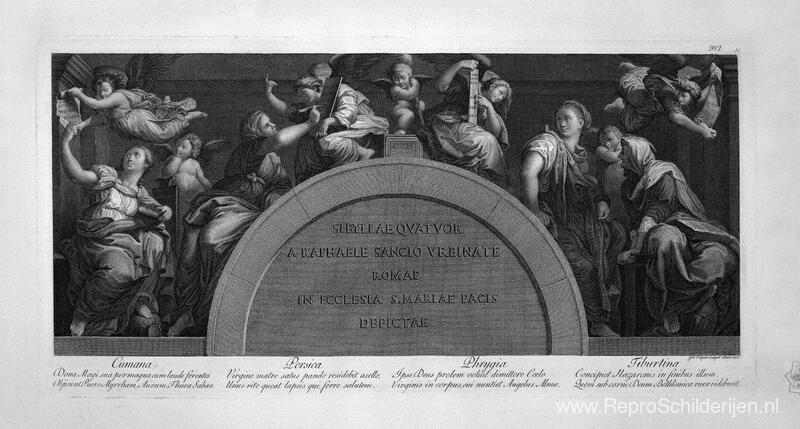 982
21
SIBYLLAE QVATVOR
A RAPHAELE SANCIO VRBINATE
ROMAE
IN ECCLESIA S. MARIAE PACIS
DEPICTAE
Cumana
Dona Magi sua per magna cum laude ferentes
Obficient Puero Myrrham, Aurum, Thura Sabea.
Persica
Virgine matre satus pando residebit asello,
Unus rite queat lapsis qui ferre salutem.
Phrygia
Ipse Deus prolem voluit dimittere Coelo
Virginis in corpus, cui nuntiet Angelus Almae.
Tiburtina
Concipiet Nazareus in finibus illum,
Quem sub carne Deum Bethlemica rura videbunt.
www.ReproSchilderijen.nl